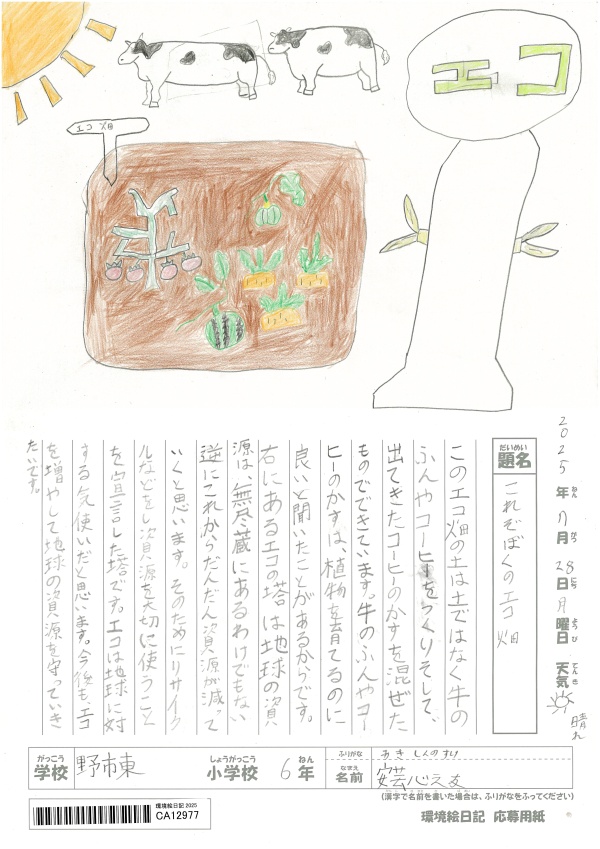 エコ
エコ畑
2025年7月28日月曜日 天気 晴れ
ねん がつ にち ようび てんき
だいめい
題名
これぞぼくのエコ畑
このエコ畑の土は土ではなく牛の
ふんやコーヒーをつくりそして、
出てきたコーヒーのかすを混ぜた
ものでできています。牛のふんやコー
ヒーのかすは、植物を育てるのに
良いと聞いたことがあるからです。
右にあるエコの塔は地球の資
源は、無尽蔵にあるわけでもない
逆にこれからだんだん資源が減って
いくと思います。そのためにリサイク
ルなどをし資源を大切に使うこと
を宣言した塔です。エコは地球に対
する気使いだと思います。今後も、エコ
を増やして地球の資源を守っていき
たいです。
がっこう しょうがっこう ねん
学校 野市東 小学校 6年
ふりがな あき しんのすけ
なまえ
名前 安芸心
(漢字で名前を書いた場合は、ふりがなをふってください)
環境絵日記 2025
CA12977
環境絵日記 応募用紙